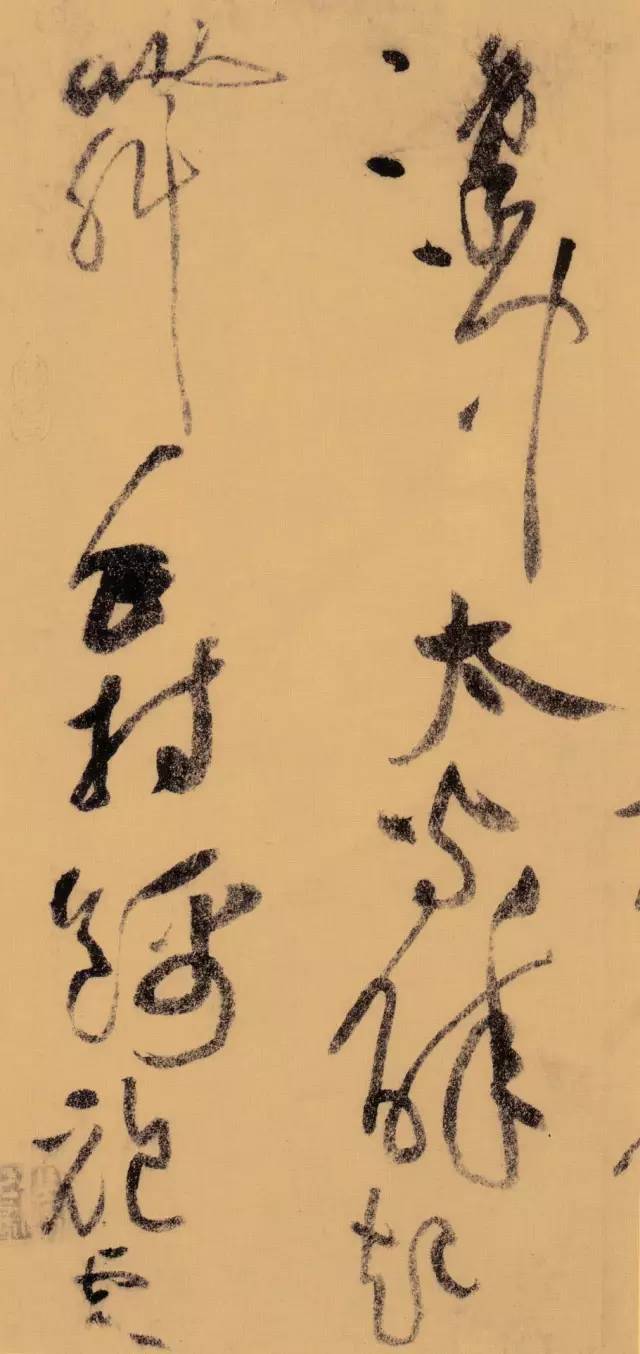 漢東太守醉起
舞手持錦袍